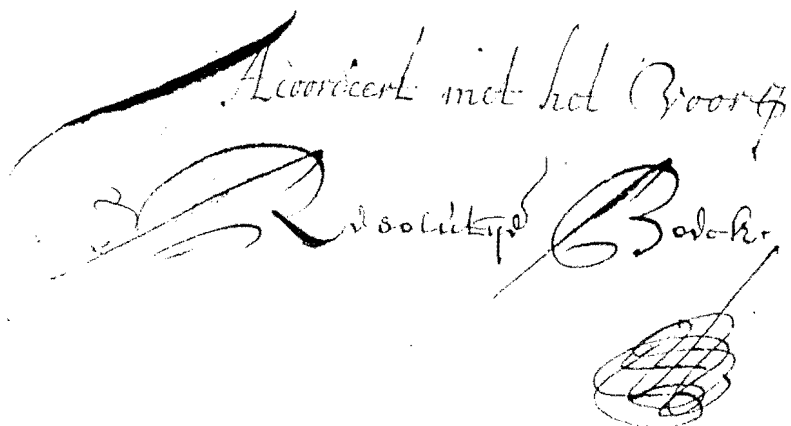 Accordeert met het Voorsz
Resolutije Boeck.